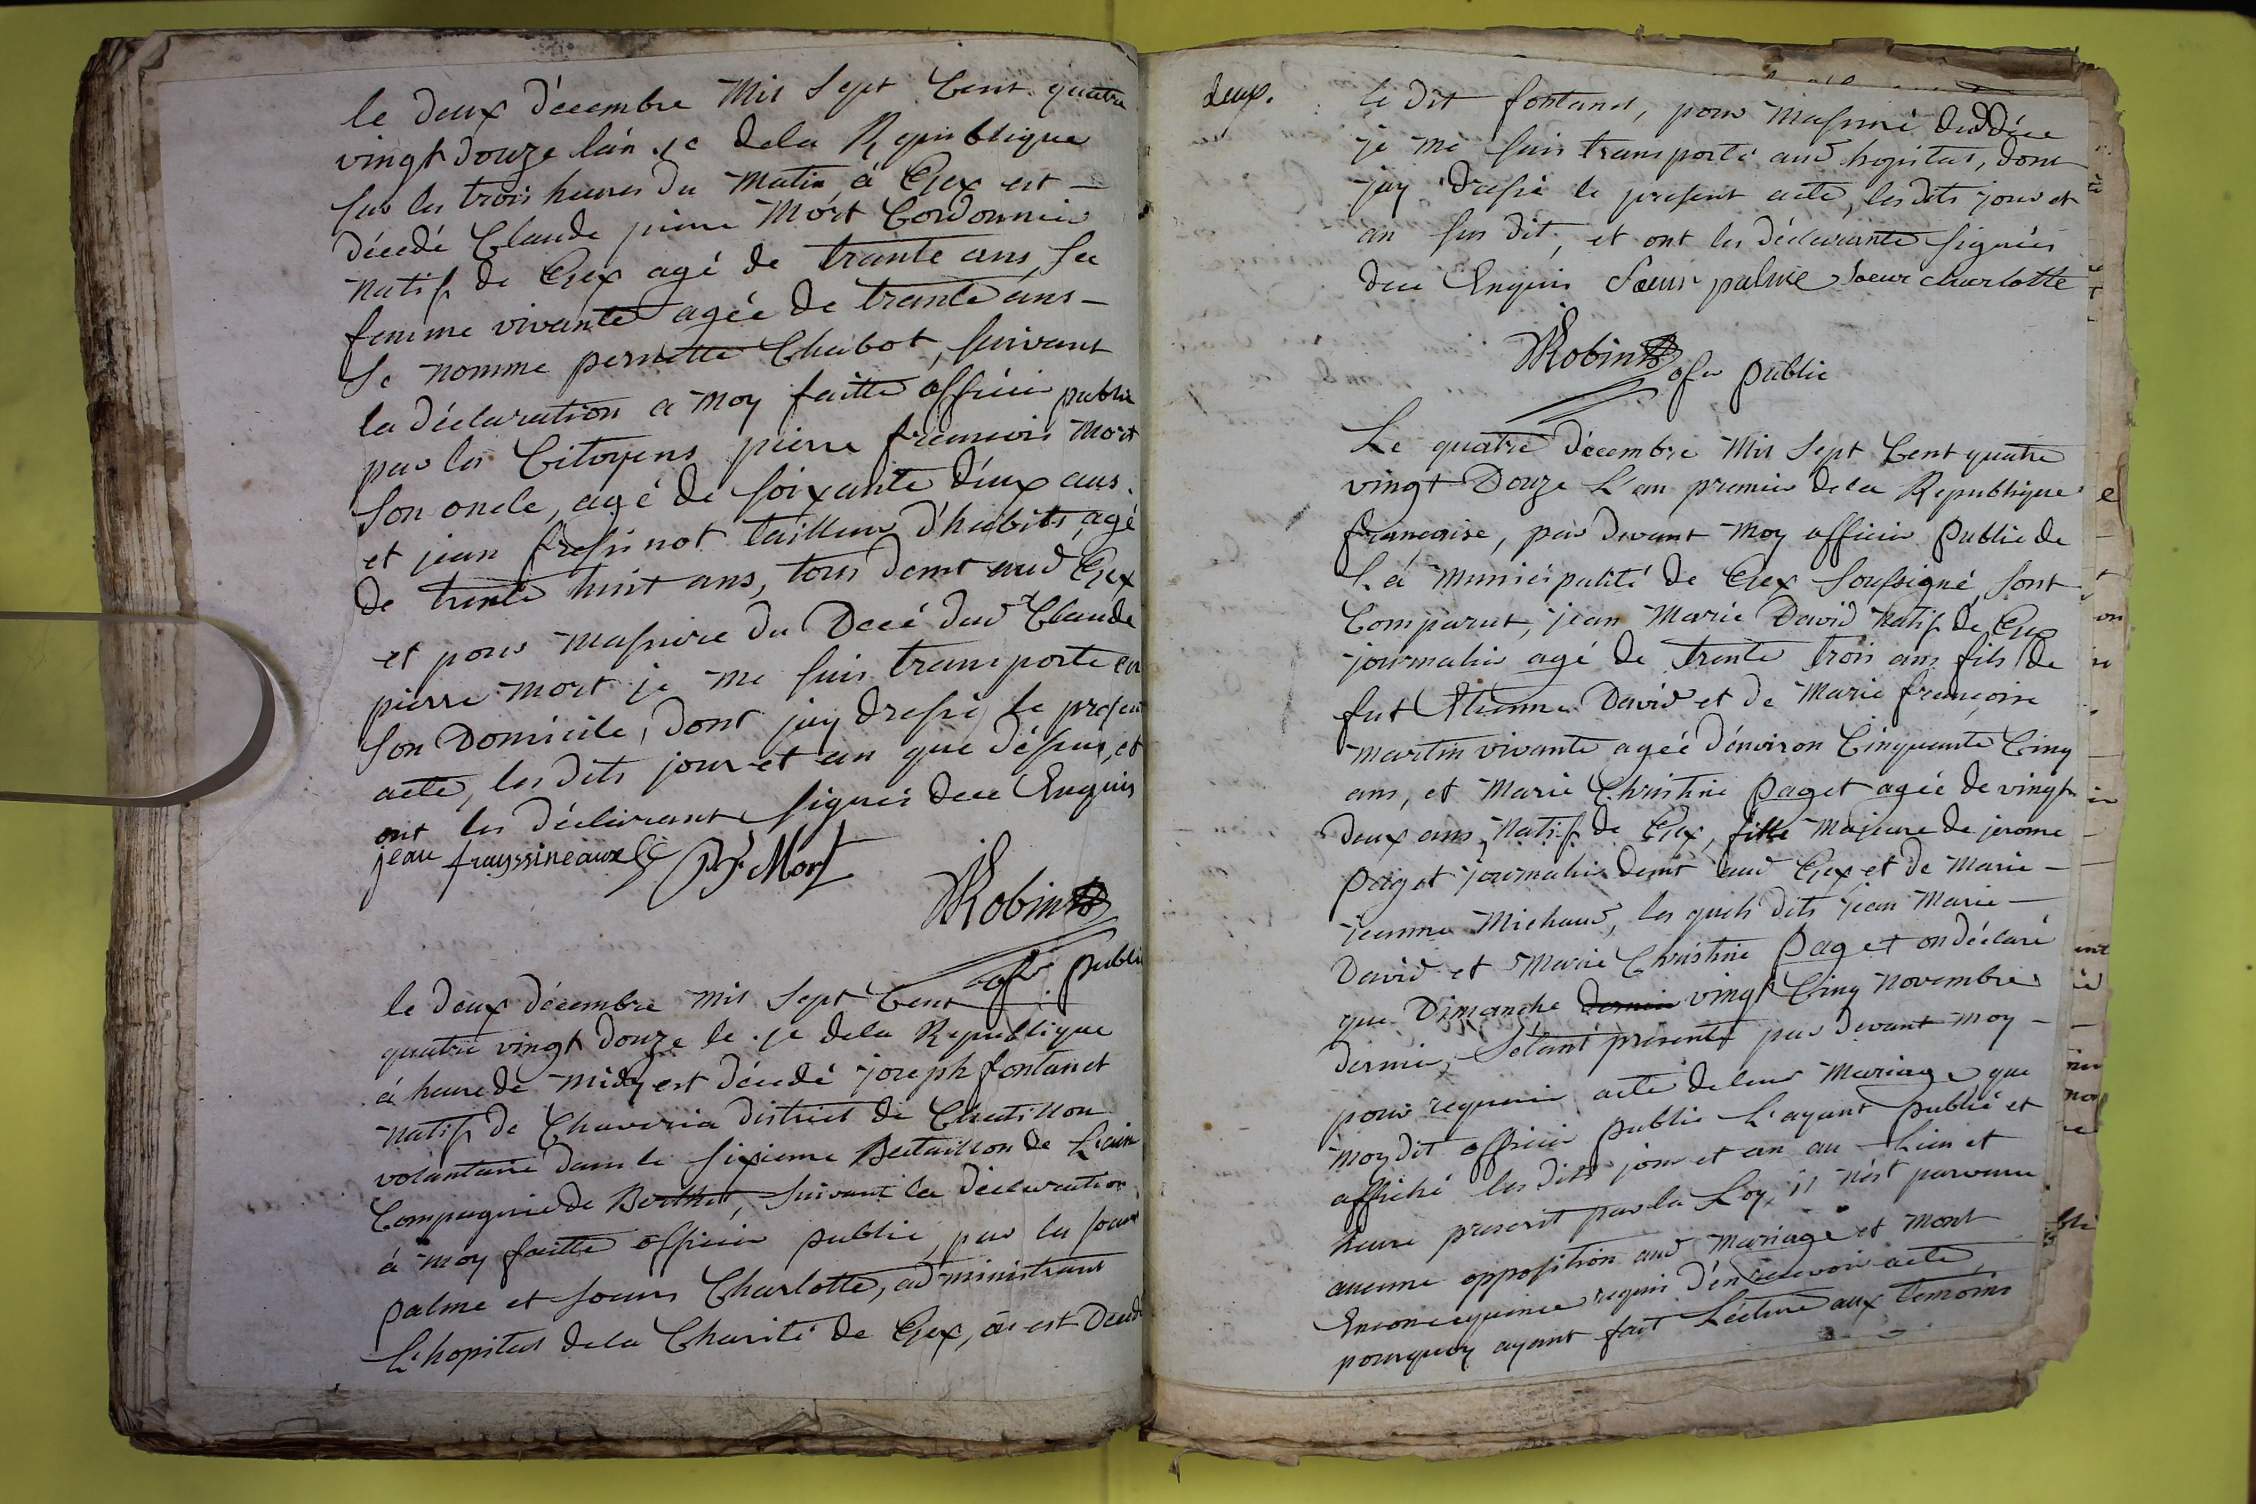 le deux décembre Mil Sept Cent quatre
vingt douze lán 1e dela Republique
sur les trois heures du Matin, á Gex est
décedé Claude pierre Mort Cordonnier
natif de Gex agé de trante ans, sa
femme vivante agée de trante ans
se nomme pernette Chabot, suivant
la déclaration a moy faitte officier public
par les Citoyens pierre francois Mort
son oncle, agé de soixante déux ans
et jean frésinot tailleur d'habits, agé
de trente huit ans, tous demt aud Gex
et pour massure du Decé dud Claude
pierre Mort je me suis transporté en
son Domicile, dont jay dressé le presen
acte, les dits jour et an que déssus, et
ont les déclarant signés dece Enquis
jean frayssineaux P. f. Mort
Robin
ofer public
le deux décembre mil sept Cent
quatre vingt douze le 1e dela Republique
á heure de midy est décedé joseph fontanet
natif de Chaveria district de Chatillon
volantaire dans le sixieme Bataillon de L'ain
Compagnie de Berthet, suivant la déclaration
á moy faitte officier public, par les soeurs
palme et soeurs Charlotte, administrant
L'hopital dela Charité de Gex, óu est Decedé
deux.
le dit fontanet, pour massuré dud Déce
je me suis transporté aud hopital, dont
jay dressé le present acte, les dits jour et
an sus dit, et ont les déclarante signées
dece Enquis Soeur palme soeur charlotte
Robin ofer public
Le quatre décembre Mil Sept Cent quatre
vingt Douze L'an premier dela Republique
françoise, par devant Moy officier Public de
La municipalité de Gex soussigné, sont
Comparut, jean Marie David natif de Gex
journalier agé de trente trois ans fils de
fut Etienne David et de Marie françoise
martin vivante agée d'environ Cinquante Cinq
ans, et Marie Christine Paget agée de vingt
deux ans, natif de Gex, fille majeure de jerome
Paget journalier demt aud Gex et de Marie
jeanne Michaud, les quels dits jean Marie
David et Marie Christine Paget on déclaré
que Dimanche dernier vingt Cinq novembre
dernier, s'étant présenté par devant moy
pour requerir acte de leur Mariage que
moy dit officier public L'ayant publié et
affiché les dits jour et an au Lieu et
heure prescrit par la Loy, il n'est parvenu
aucune opposition aud mariage et mont
Enconcequence requis d'en recevoir acte,
pourquoy ayant fait Lécture aux temoins